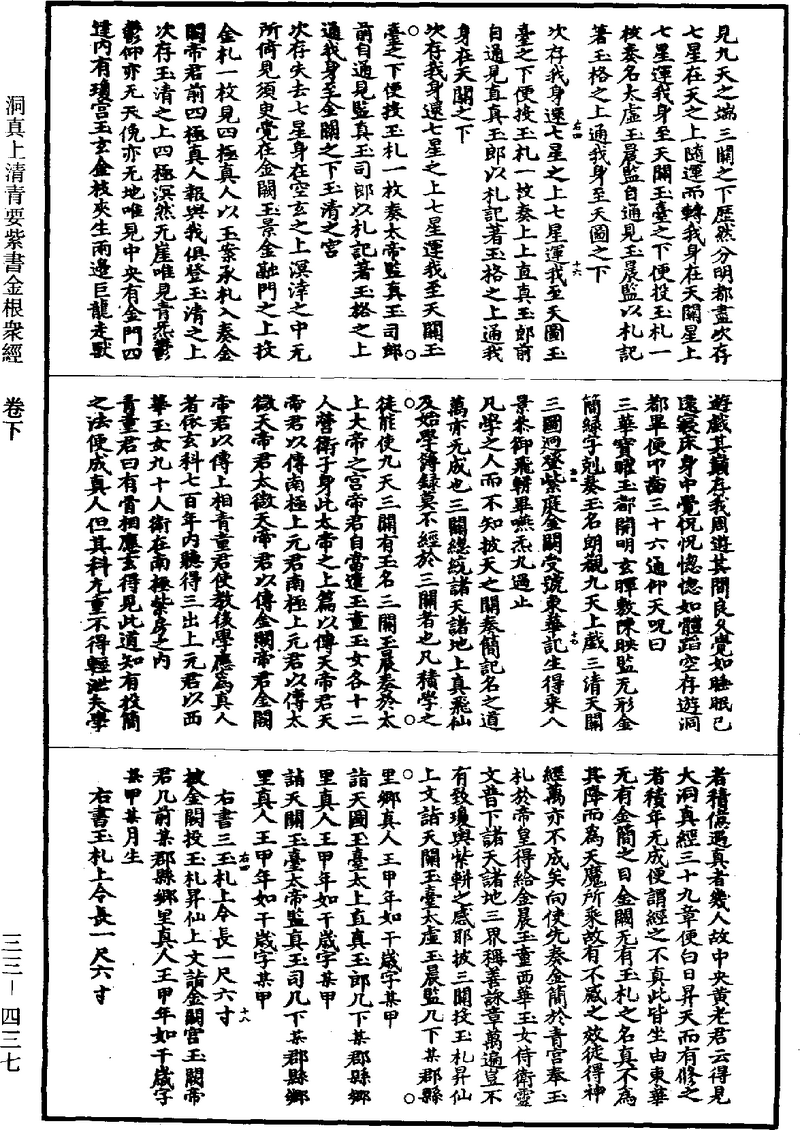 洞真上清青要紫書金根衆經　卷下
三三－四三七
見九天之端三關之下歷然分明都盡次存
七星在天之上隨運而轉我身在天關星上
七星運我身至天關玉臺之下便投玉札一
枚奏名太虛玉晨監自通見玉晨監以札記
著玉格之上通我身至天圖之下
右四
十六
次存我身還七星之上七星運我至天圖玉
臺之下便投玉札一枚奏上上直真玉郎前
自通見直真玉郎以札記著玉格之上通我
身在天關之下
次存我身還七星之上七星運我至天關玉
臺之下便投玉札一枚奏太帝監真玉司郎
前自通見監真玉司郎以札記著玉格之上
通我身至金關之下玉清之宮
次存失去七星身在空玄之上溟涬之中无
所倚見須臾覺在金闕玉景金融門之上投
金札一枚見四極真人以玉案承札入奏金
闕帝君前四極真人報與我俱登玉清之上
次存玉清之上四極溟然无崖唯見青炁鬱
鬱仰亦无天俛亦无地唯見中央有金門四
達内有瓊宮玉玄金枝夾生兩邊巨龍走獸
遊戲其巔存我周遊其間良久覺如睡眠已
還寢床身中覺怳怳惚惚如體蹈空存遊洞
都畢便叩齒三十六通仰天呪曰
三華寶曜玉都開明玄暉敷陳映監无形金
簡緑字刻奏玉名朗觀九天上戲三清天關
三圖迴登紫庭金闕受號東華記生得乘八
景參御飛軿畢嚥炁九過止
凡學之人而不知披天之關奏簡記名之道
萬亦无成也三關總統諸天諸地上真飛仙
及始學簿録莫不經於三關者也凡積學之
徒能使九天三關有玉名三關玉晨奏於太
上大帝之宮帝君自當遣玉童玉女各十二
人營衛子身此太帝之上篇以傳天帝君天
帝君以傳南極上元君南極上元君以傳太
微天帝君太微天帝君以傳金闕帝君金闕
帝君以傳上相青童君使教後學應爲真人
者依玄科七百年内聽得三出上元君以西
華玉女九十人衛在南極紫房之内
青童君曰有骨相應玄得見此道知有投簡
之法便成真人但其科尤重不得輕泄夫學
者積偹遇真者幾人故中央黄老君云得見
大洞真經三十九章便白日昇天而有修之
者積年无成便謂經之不真此皆坐由東華
无有金簡之目金闕无有玉札之名真不爲
其降而爲天魔所乘故有不感之效徒得神
經萬亦不成矣向使先奏金簡於青宮奉玉
札於帝皇得給金晨玉童西華玉女侍衛靈
文普下諸天諸地三界稱善詠章萬遍豈不
有致瓊輿紫軿之感耶披三關投玉札昇仙
上文詣天關玉臺太虛玉晨監几下某郡縣
里鄉真人王甲年如干歲字某甲
詣天圖玉臺太上直真玉郎几下某郡縣鄉
里真人王甲年如干歲字某甲
詣天關玉臺太帝監真玉司几下某郡縣鄉
里真人王甲年如干歲字某甲
右四
十八
右書三玉札上令長一尺六寸
披金關投玉札昇仙上文詣金闕宮玉闕帝
君几前某郡縣鄉里真人王甲年如干歲字
某甲某月生
右書玉札上令長一尺六寸